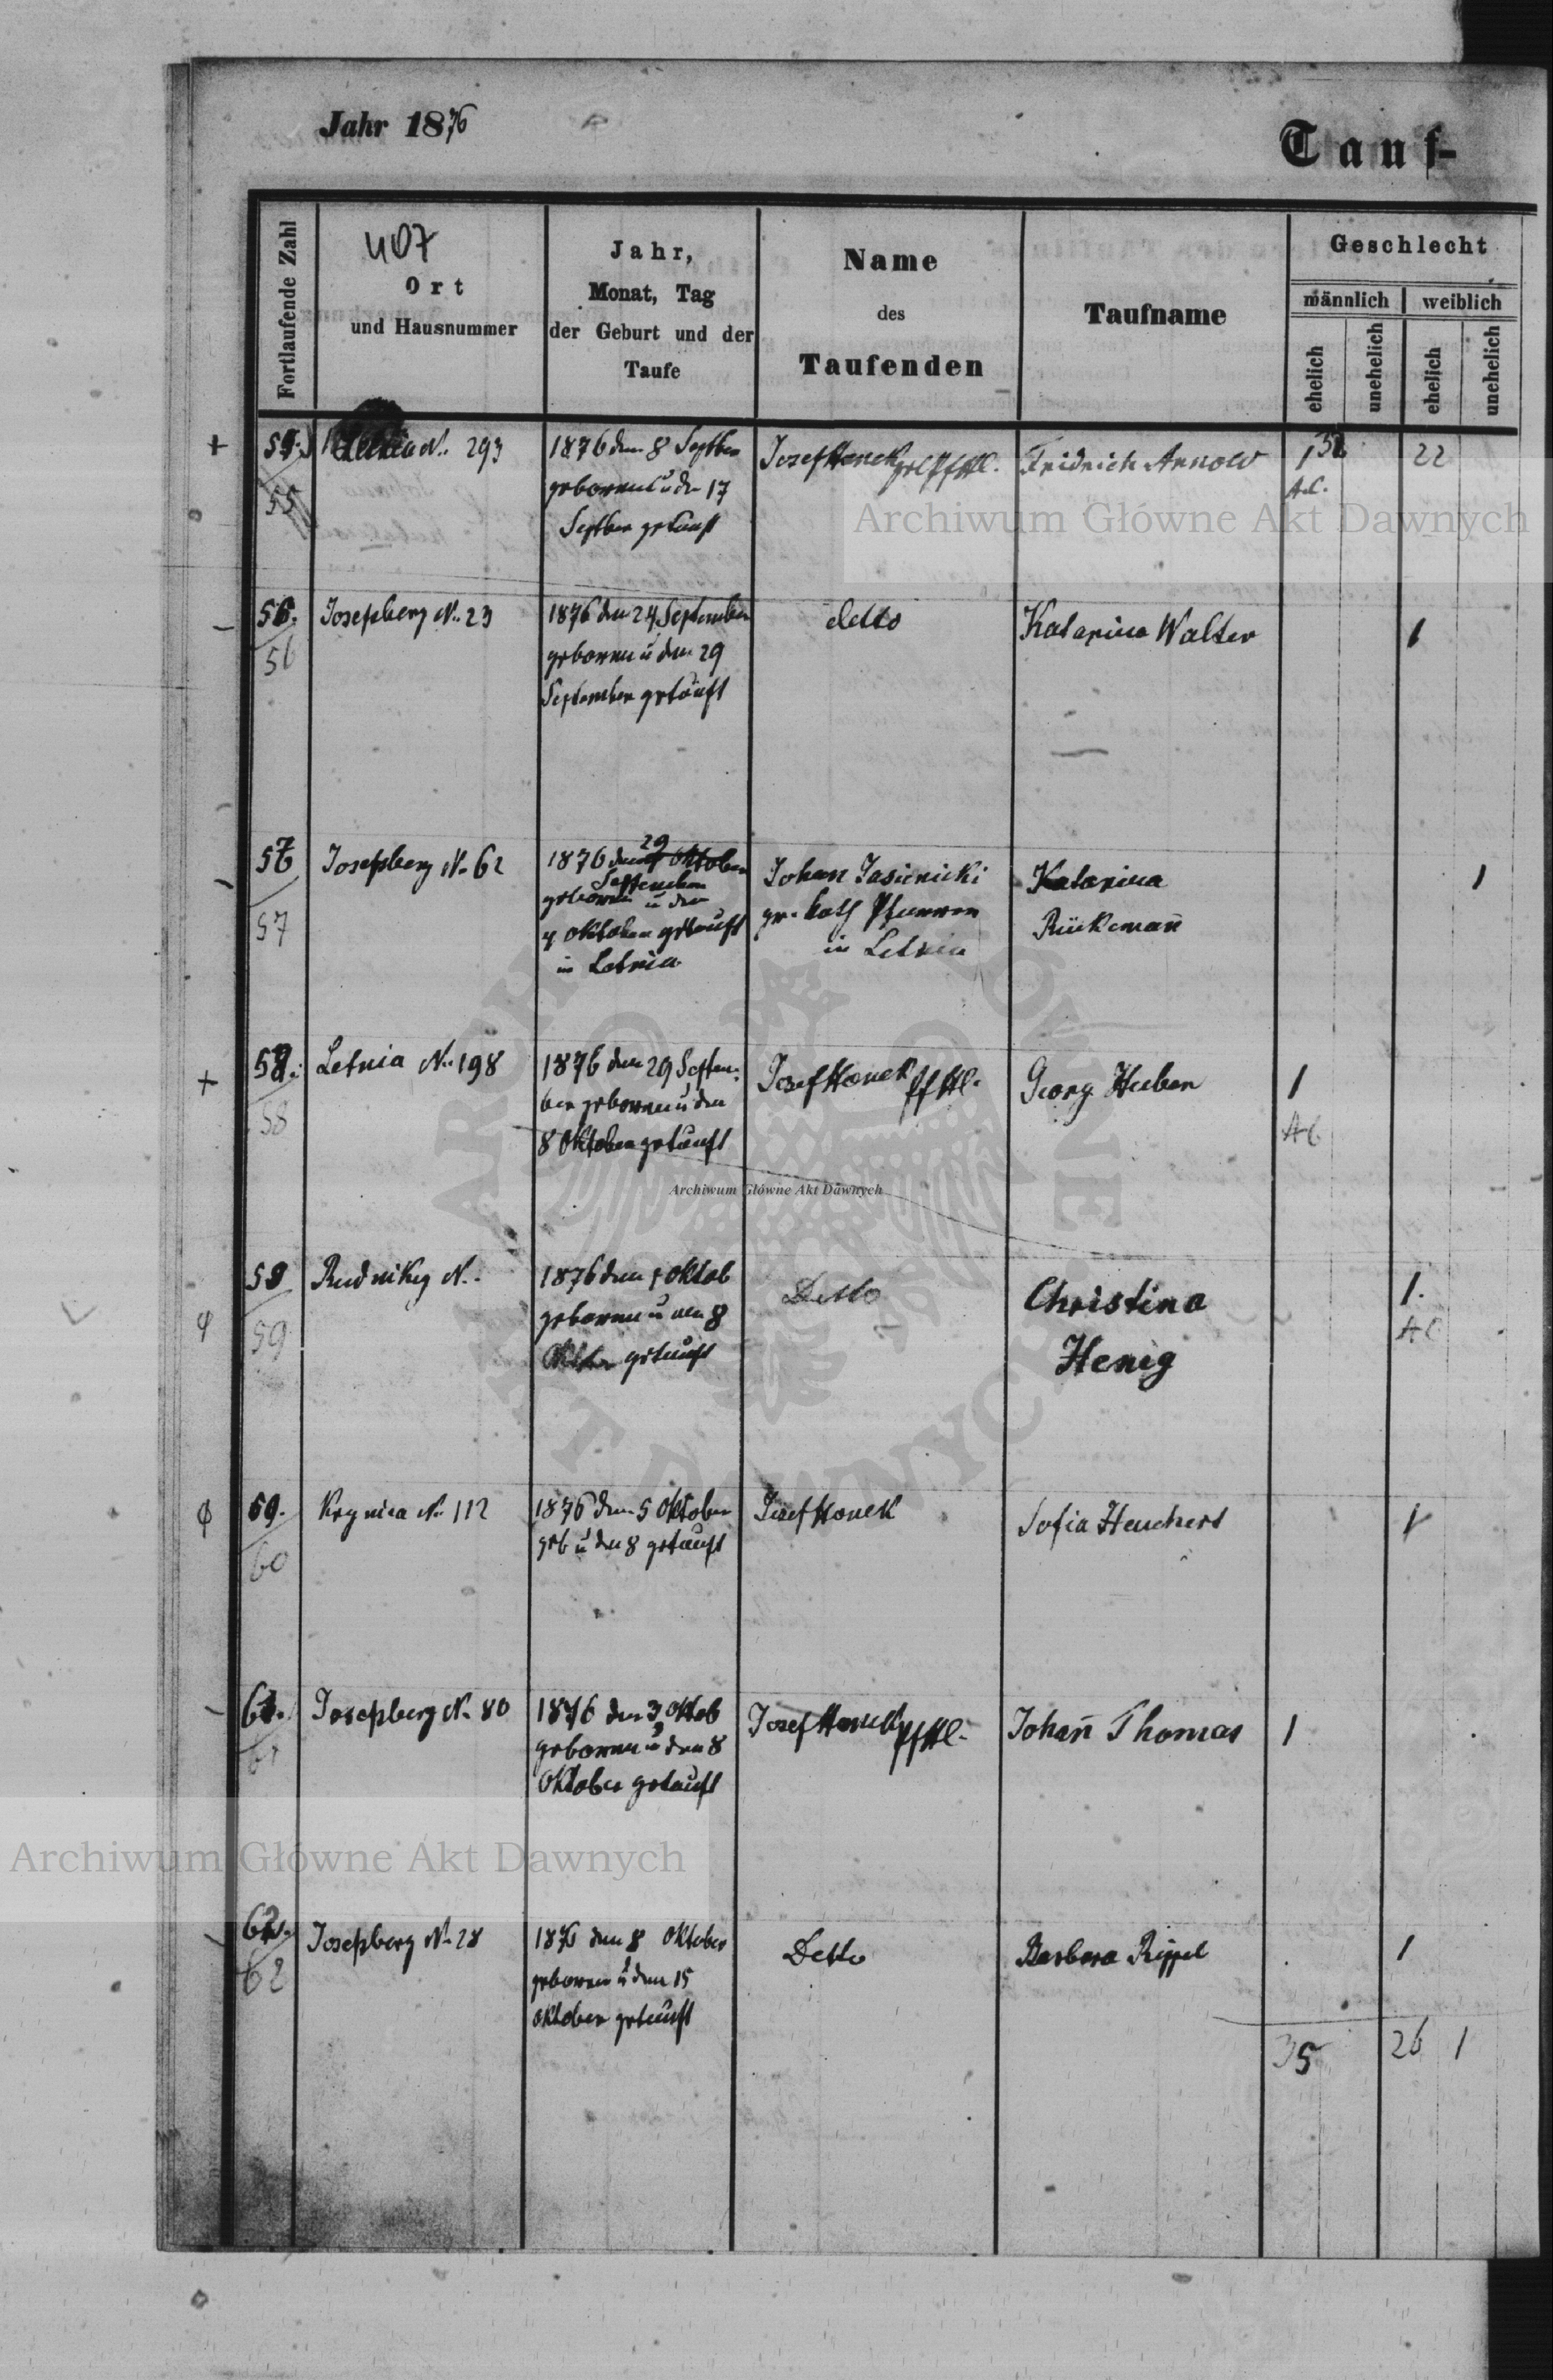 Jahr 1876
Tauf-
Fortlaufende Zahl
407
Ort
und Hausnummer
Jahr,
Monat, Tag
der Geburt und der
Taufe
Name
des
Taufenden
Taufname
Geschlecht
männlich
weiblich
ehelich
unehelich
ehelich
unehelich
55
N. 293
1876 den 8 Septber
geboren u den 17
Septber getauft
Josef Honek
Fridrich Arnold
1
A.C.
22
Archiwum Główne Akt Dawnych
56.
56
Josefsberg N. 23
1876 den 24 September
geboren u den 29
September getauft
detto
Katarina Walter
1
57
57
Josefsberg N. 62
29
1876 den Oktober
September
geboren u den
4 Oktober getauft
in Letnia
Johan Jasienicki
gr. Kath Pfarrer
in Letnia
Katarina
Rückemañ
1
58.
58
Letnia N. 198
1876 den 29 Septem
ber geboren u den
8 Oktober getauft
Josef Honek
Georg Huber
1
AC
Archiwum Główne Akt Dawnych
59
59
Rudniky N.
1876 den 5 Oktob
geboren u den 8
getauft
Detto
Christina
Henig
1.
AC
60
Krynica N. 112
1876 den 5 Oktober
geb u den 8 getauft
Josef Honek
Sofia Heuchert
1
61.
61
Josefsberg N. 80
1876 den 3 Oktob
geboren u den 8
Oktober getauft
Josef Honek
Johañ Thomas
1
Archiwum Główne Akt Dawnych
62.
62
Josefsberg N. 28
1876 den 8 Oktober
geboren u den 15
Oktober getauft
Detto
Barbara Rippel
1
35
26
1
ARCHIWUM GŁÓWNE AKT DAWNYCH